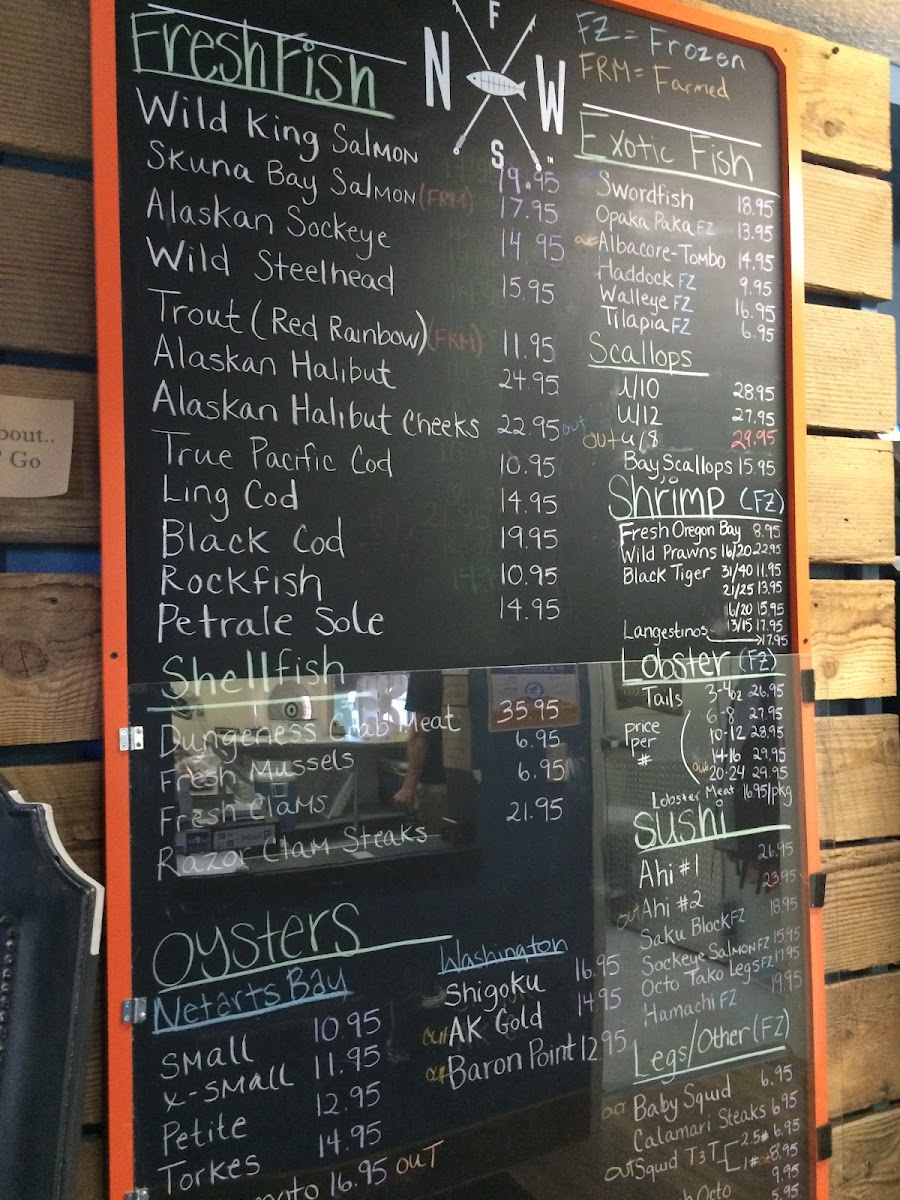 bout..
Go
N F W S
FZ = Frozen
FRM = Farmed
Fresh Fish
Wild King Salmon 19.95
Skuna Bay Salmon (FRM) 17.95
Alaskan Sockeye 14.95
Wild Steelhead 15.95
Trout (Red Rainbow) (FRM) 11.95
Alaskan Halibut 24.95
Alaskan Halibut Cheeks 22.95 out
True Pacific Cod 10.95
Ling Cod 14.95
Black Cod 19.95
Rockfish 10.95
Petrale Sole 14.95
Shellfish
Dungeness Crab Meat 35.95
Fresh Mussels 6.95
Fresh Clams 6.95
Razor Clam Steaks 21.95
Oysters
Netarts Bay
Small 10.95
X-Small 11.95
Petite 12.95
Torkes 14.95
16.95 OUT
Washington
Shigoku 16.95
out AK Gold 14.95
out Baron Point 12.95
Exotic Fish
Swordfish 18.95
Opaka Paka FZ 13.95
out Albacore-Tombo 14.95
Haddock FZ 9.95
Walleye FZ 16.95
Tilapia FZ 6.95
Scallops
U/10 28.95
U/12 27.95
OUT U/8 29.95
Bay Scallops 15.95
Shrimp (FZ)
Fresh Oregon Bay 8.95
Wild Prawns 16/20 22.95
Black Tiger 31/40 11.95
21/25 13.95
16/20 15.95
13/15 17.95
Langestinos 17.95
Lobster (FZ)
Tails 3-4oz 26.95
price per # 6-8 27.95
10-12 28.95
14-16 29.95
out 20-24 29.95
Lobster Meat 16.95/pkg
Sushi
Ahi #1 26.95
out Ahi #2 23.95
Saku Block FZ 18.95
Sockeye Salmon FZ 15.95
Octo Tako Legs FZ 17.95
Hamachi FZ 19.95
Legs/Other (FZ)
out Baby Squid 6.95
Calamari Steaks 6.95
out Squid T3T 2.5# 6.95
1# 8.95
Octo 9.95
5.95